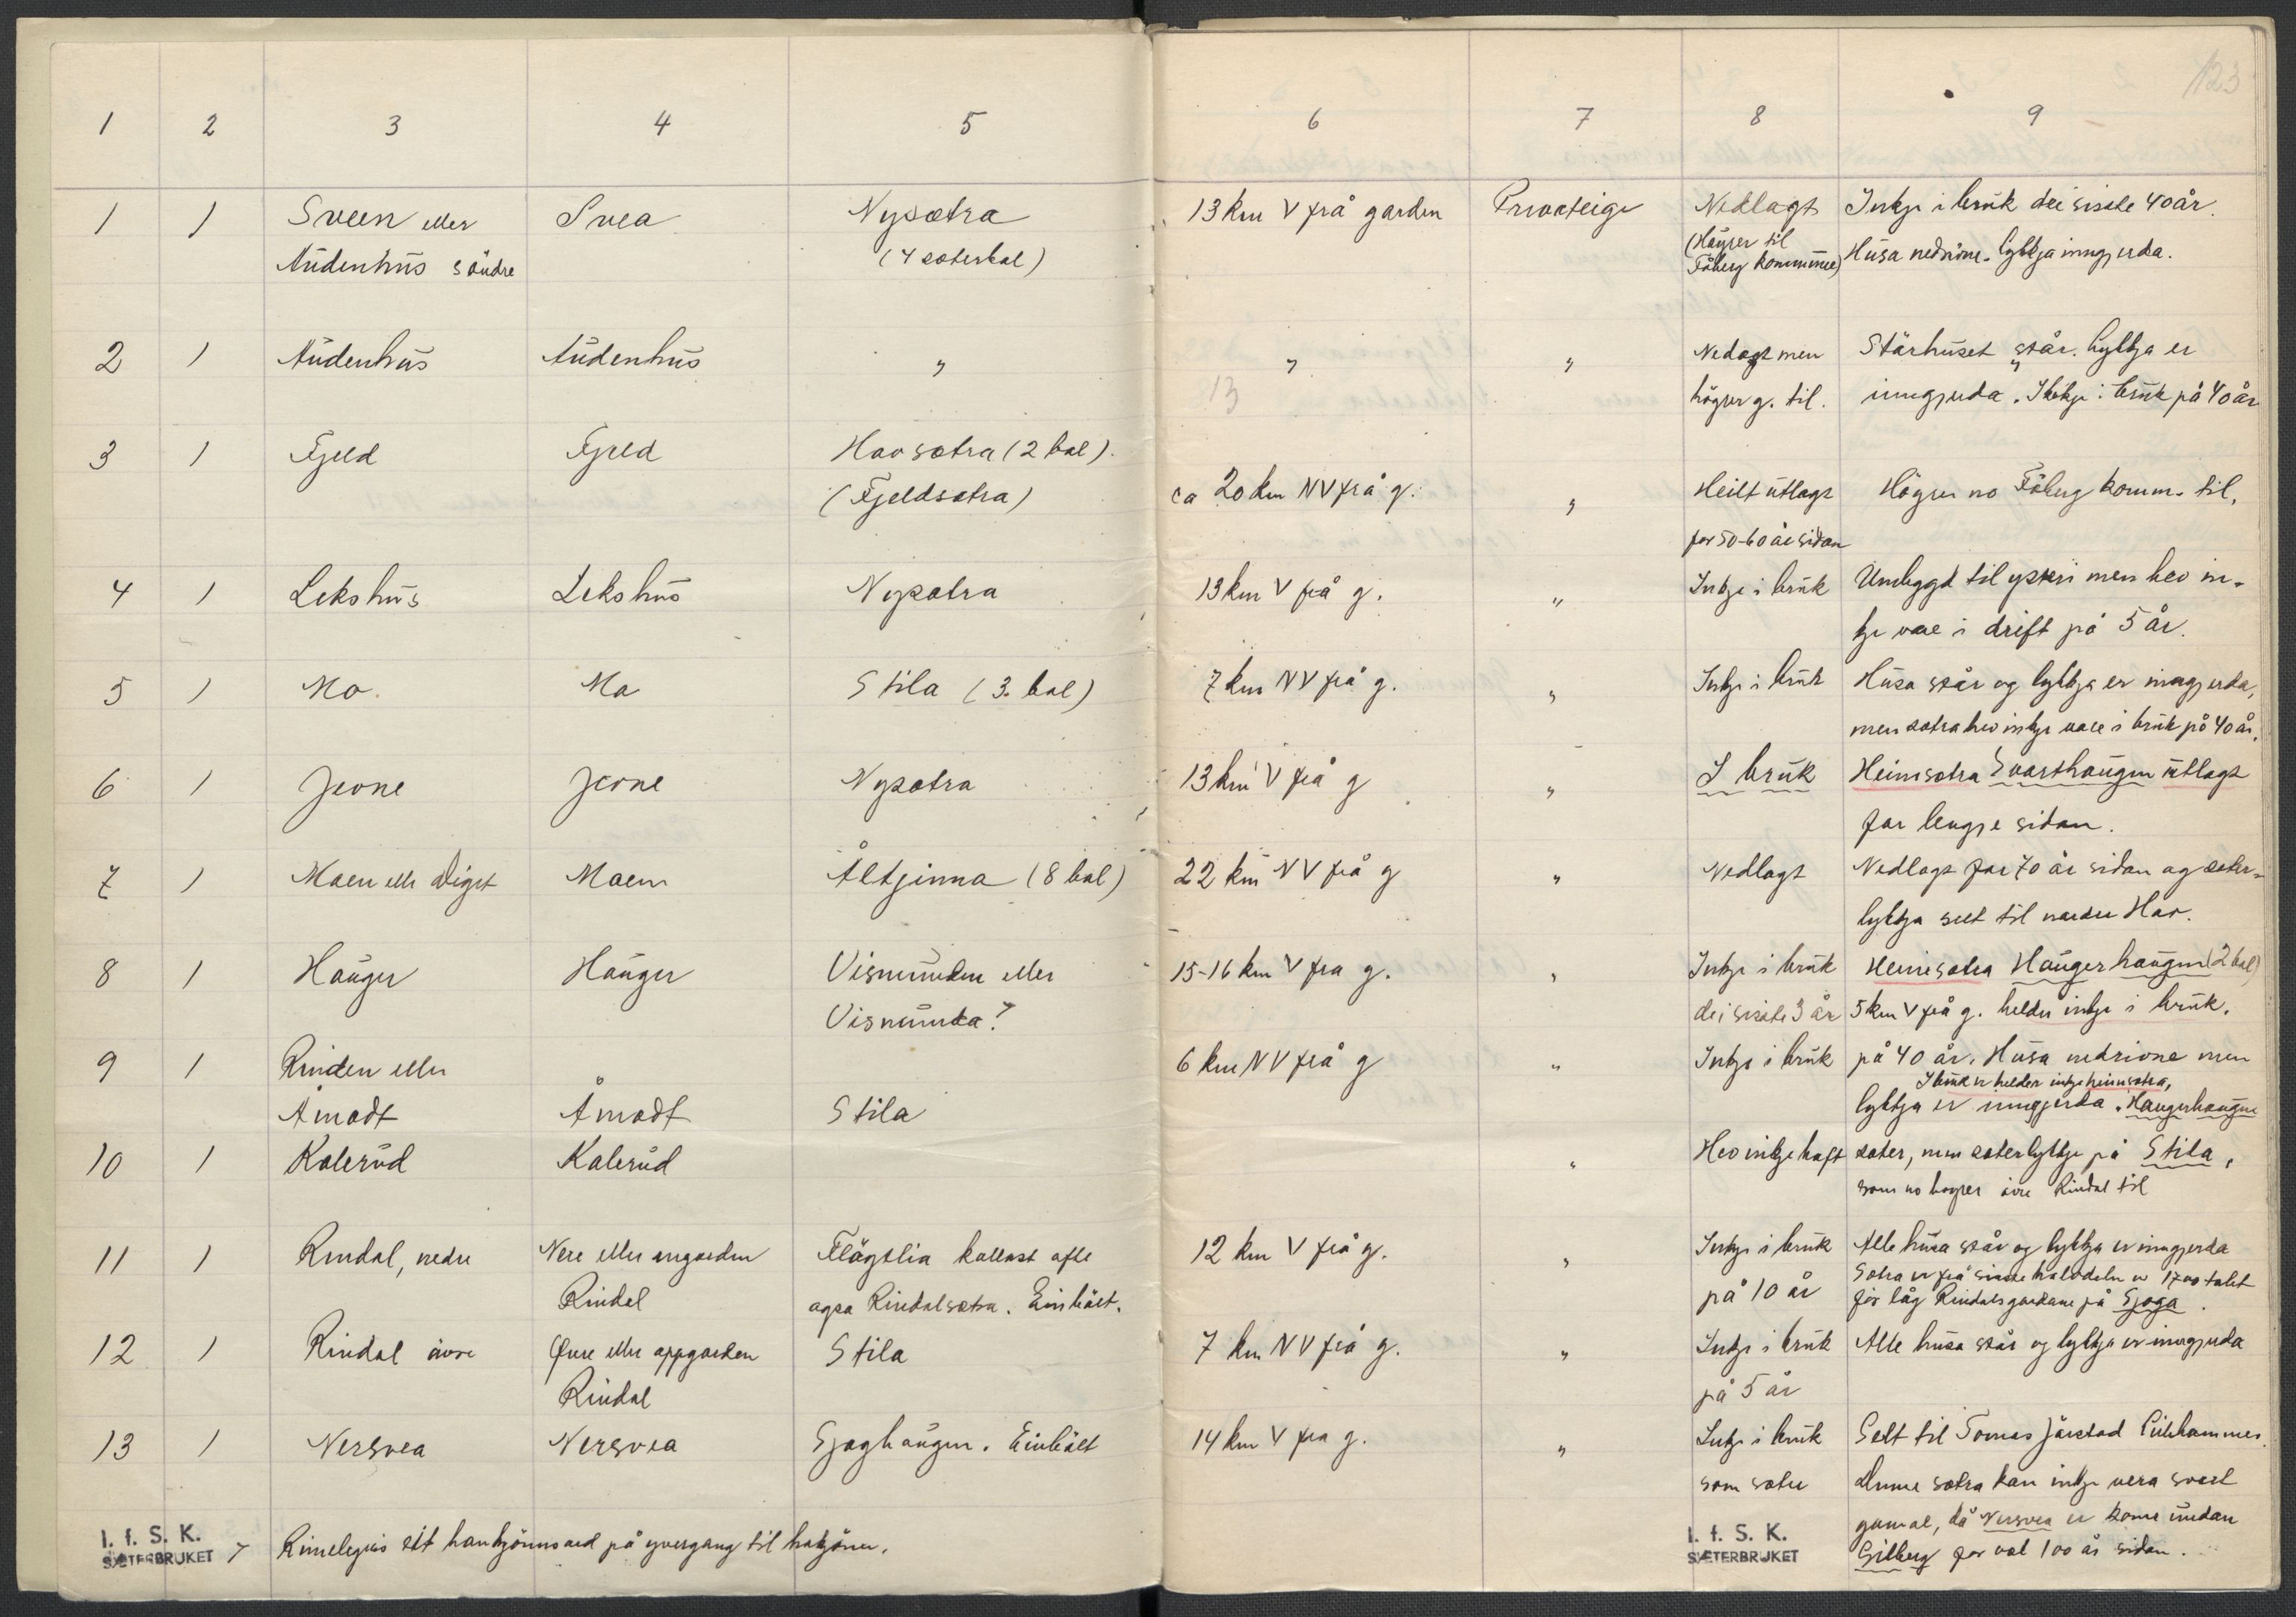 123
1 2 3 4 5 6 7 8 9
1 1 Sveen eller Svea Nysætra 13 km V frå garden Privateige Nedlagt Inkje i bruk dei siste 40 år.
Audenhus söndre (4 sæterbol) (Høyrer til Fåberg kommune) Husa nedrivne. Lykkja inngjerda.
2 1 Audenhus Audenhus " " " Nedlagt men Stårhuset står. Lykkja er
13 högrer g. til. inngjerda. Ikkje i bruk på 40 år
3 1 Fjeld Fjeld Havsætra (2 bol).
(Fjeldsætra) ca 20 km NV frå g. " Heilt utlagt Högrer no Fåberg komm. til.
for 50-60 år sidan
4 1 Lekshus Lekshus Nysætra 13 km V frå g. " Inkje i bruk Umbygd til ysteri men hev in-
kje vore i drift på 5 år.
5 1 Mo Mo Stila (3 bol) 7 km NV frå g. " Inkje i bruk Husa står og lykkja er inngjerda,
men sætra hev inkje vore i bruk på 40 år.
6 1 Jevne Jevne Nysætra 13 km V frå g " I bruk Heimsætra Svarthaugen utlagt
for lengje sidan.
7 1 Moen eller Diget Moen Åltjinna (8 bol) 22 km NV frå g " Nedlagt Nedlagt for 70 år sidan og sæter-
lykkja selt til nordre Hov.
8 1 Hauger Hauger Vismunden eller 15-16 km V fra g. " Inkje i bruk Heimesætra Haugerhaugen (2 bol)
Vismunda? dei siste 3 år 5 km V frå g. helder inkje i bruk.
9 1 Rinden eller 6 km NV frå g " Inkje i bruk på 40 år. Husa nedrivne men
I bruk er helder inkje heimsætra,
Åmodt Åmodt Stila lykkja er inngjerda. Haugerhaugen
10 1 Kalerud Kalerud " Hev inkje haft sæter, men sæterlykkje på Stila,
som no høgrer övre Rindal til
11 1 Rindal, nedre Nere eller nigarden Flägslia kallast ofte 12 km V frå g. " Inkje i bruk Alle husa står og lykkja er inngjerda
Rindal ogsa Rindalsætra. Einbölt. på 10 år Sætra er frå siste halvdeln av 1700 talet
för låg Rindalsgardane på Gjøga.
12 1 Rindal övre Øvre eller oppgarden Stila 7 km NV frå g. " Inkje i bruk Alle husa står og lykkja er inngjerda
Rindal på 5 år
13 1 Nersvea Nersvea Gjøghaugen. Einbölt 14 km V fra g. " Inkje i bruk Selt til Tomas Jårstad Lillehammer.
som sæter Denne sætra kan inkje vera svært
gamal, då Nersvea er kome undan
Gilberg for vel 100 år sidan.
I. f. S. K.
SÆTERBRUKET
Rimelegvis eit hankjönnsord på yvergang til hokjönn.
I. f. S. K.
SÆTERBRUKET